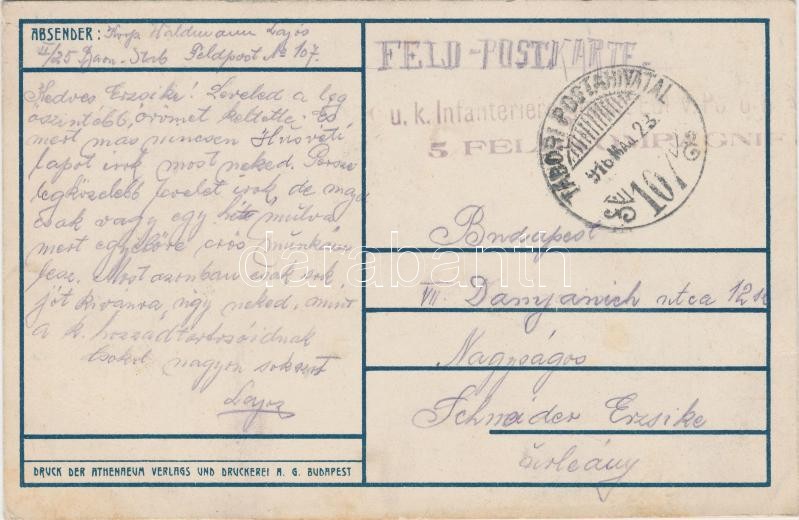 ABSENDER: Korp Waldmann Lajos
II/25 Baon. Stab Feldpost № 107.
FELD-POSTKARTE.
TÁBORI POSTAHIVATAL
916 MÁR 23
107
u. k. Infanterie
5. FELD
Kedves Erzsike! Leveled a leg
őszintébb örömet keltette. És
mert mas nincsen Húsvéti
lapot irok most neked.
legközelebb levelet irok, de majd
csak vagy egy hét mulva
mert egyelőre erős munkám
lesz. Most azonban csak sok
jót kivanva, ugy neked, mint
a k. hozzádtartozóidnak
Csokol nagyon sokszor
Lajos
Budapest
VII. Damjanich utca 12
Nagyságos
Schneider Erzsike
úrleány
darabanth
DRUCK DER ATHENAEUM VERLAGS UND DRUCKEREI A. G. BUDAPEST